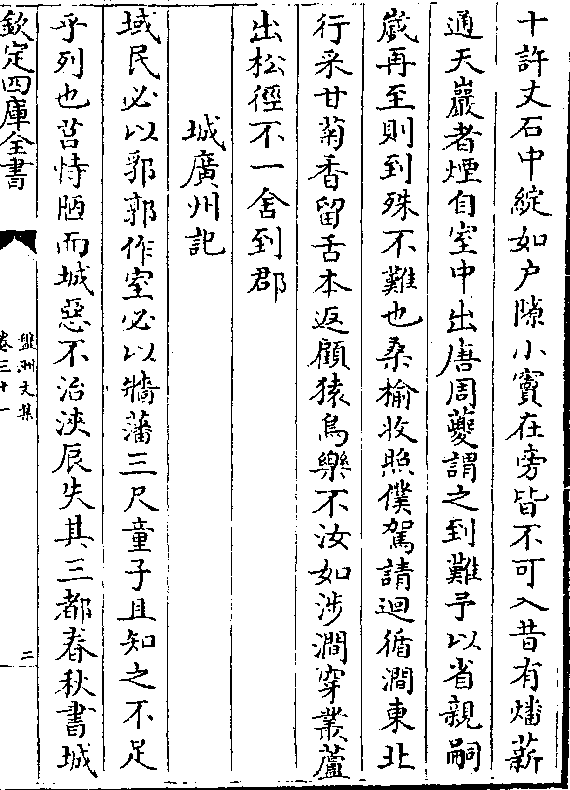 十許丈石中綻如户隙小竇在旁皆不可入昔有燔薪
通天巖者煙自室中出唐周夔謂之到難予以省親嗣
嵗再至則到殊不難也桑榆收照僕駕請迴循澗東北
行采甘菊香留舌本返顧猿鳥樂不汝如涉澗穿叢蘆
出松徑不一舍到郡
城廣州記
域民必以郛郭作室必以牆藩三尺童子且知之不足
乎列也莒恃陋而城惡不治浹辰失其三都春秋書城
欽定四庫全書
盤洲文集
卷三十一
二